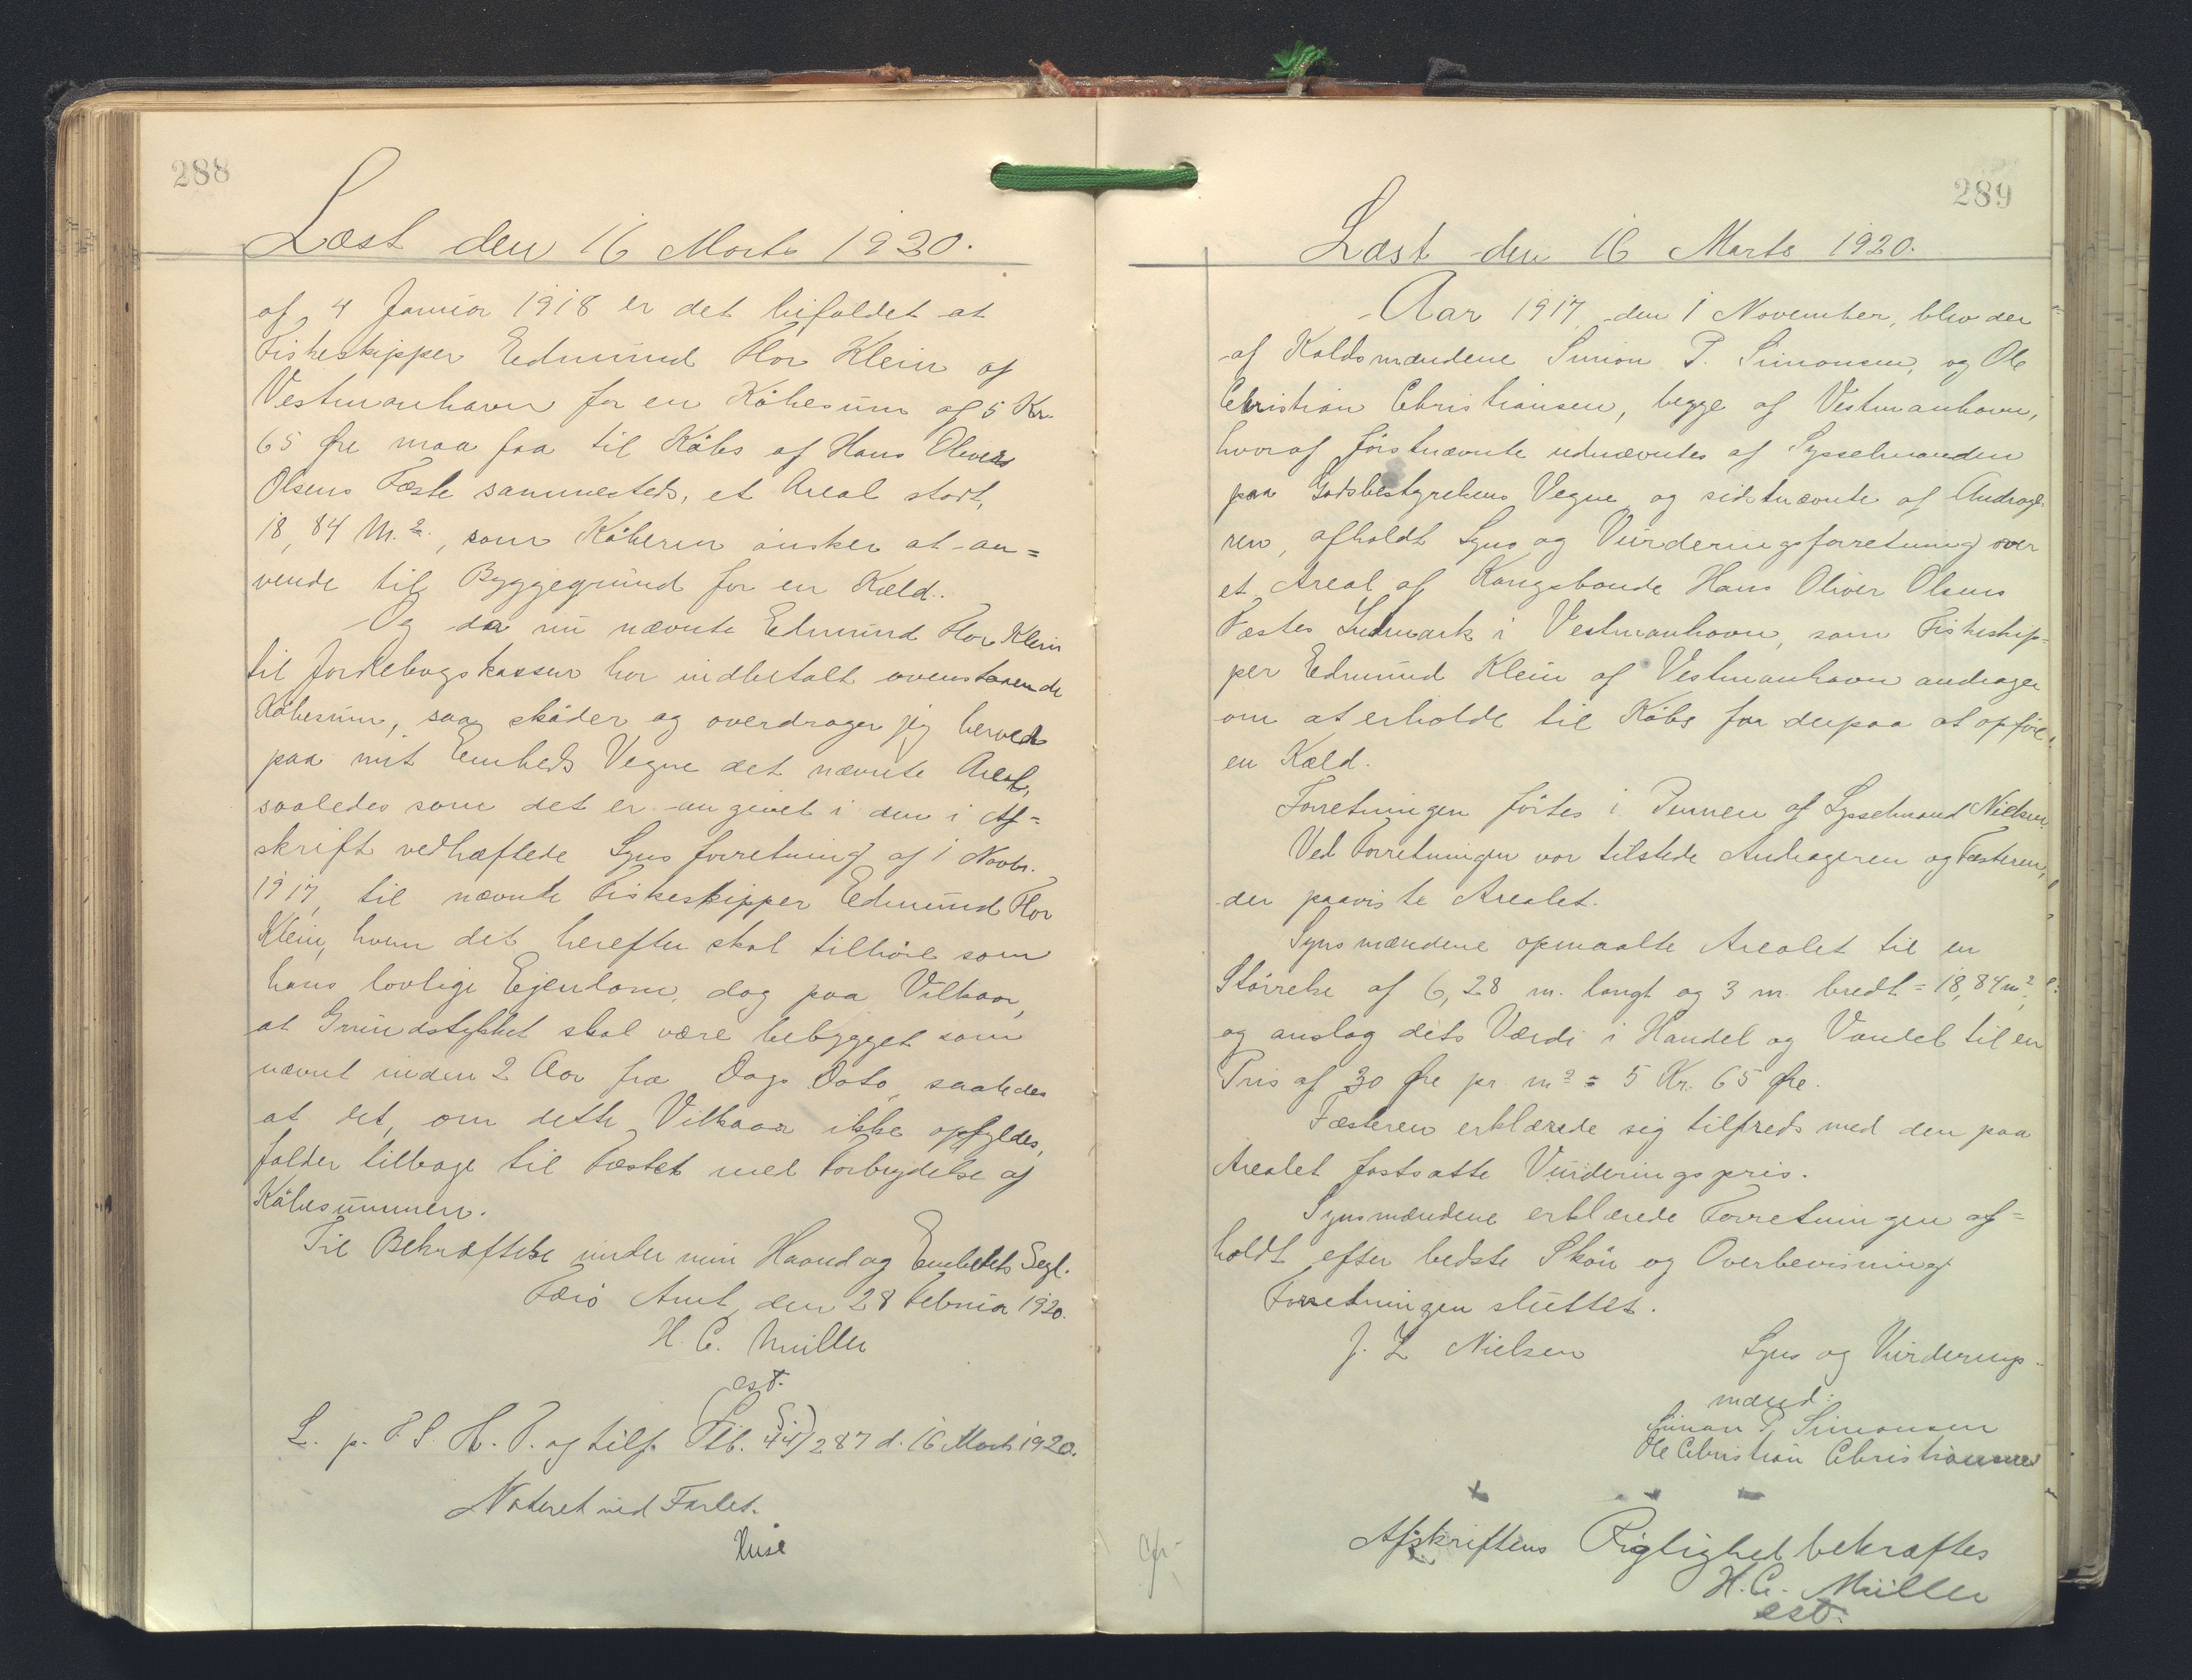 288
Læst den 16 Marts 1920.
af 4 Januar 1918 er det bifaldet at
Fiskeskipper Edmund Flor Klein af
Vestmanhavn for en Köbesum af 5 Kr.
65 Øre maa faa til Köbs af Hans Olivers
Olsens Fæste sammesteds, et Areal stort,
18,84 M.², som Köberen önsker at an=
vende til Byggegrund for en Kæld.
Og da nu nævnte Edmund Flor Klein
til Jordebogskassen har indbetalt ovenstaaende
Köbesum, saa sköder og overdrager jeg herved
paa mit Embeds Vegne det nævnte Areal,
saaledes som det er angivet i den i Af=
skrift vedhæftede Synsforretning af 1 Novbr.
1917, til nævnte Fiskeskipper Edmund Flor
Klein, hvem det herefter skal tilhöre som
hans lovlige Ejendom, dog paa Vilkaar,
at Grundstykket skal være bebygget som
nævnt inden 2 Aar fra Dags Dato, saaledes
at det, om dette Vilkaar ikke opfyldes,
falder tilbage til Fæstet med Forbrydelse af
Köbesummen.
Til Bekræftelse under min Haand og Embedets Segl.
Færö Amt, den 28 Februar 1920.
H. C. Müller
est.
L. p. F. S. H. T. og tilf. Ptb. 44/287 d. 16 Marts 1920.
Noteret ved Farlet.
289
Læst den 16 Marts 1920.
Aar 1917, den 1 November, blev der
af Kaldsmændene Simon P. Simonsen, og Ole
Christian Christiansen, begge af Vestmanhavn,
hvoraf förstnævnte udnævntes af Sysselmanden
paa Godsbestyrelsens Vegne og sidstnævnte af Andrage-
ren, afholdt Syns og Vurderingsforretning over
et Areal af Kongsbonde Hans Oliver Olsens
Fæstes Indmark i Vestmanhavn, som Fiskeskip=
per Edmund Klein af Vestmanhavn andrager
om at erholde til Köbs for derpaa at opföre
en Kæld.
Forretningen förtes i Pennen af Sysselmand Nielsen.
Ved Forretningen var tilstede Andrageren og Fæsteren,
der paaviste Arealet.
Synsmændene opmaalte Arealet til en
Störrelse af 6,28 m. langt og 3 m. bredt = 18,84 m²,
og anslog dets Værdi i Handel og Vandel til en
Pris af 30 Øre pr m² = 5 Kr. 65 Øre.
Fæsteren erklærede sig tilfreds med den paa
Arealet fastsatte Vurderingspris.
Synsmændene erklærede Forretningen af=
holdt efter bedste Skön og Overbevisning
Forretningen sluttet.
J. L Nielsen Syns og Vurderings-
mænd:
Simon P. Simonsen
Ole Christian Christiansen
Afskriftens Rigtighed bekræftes
H. C. Müller
est.